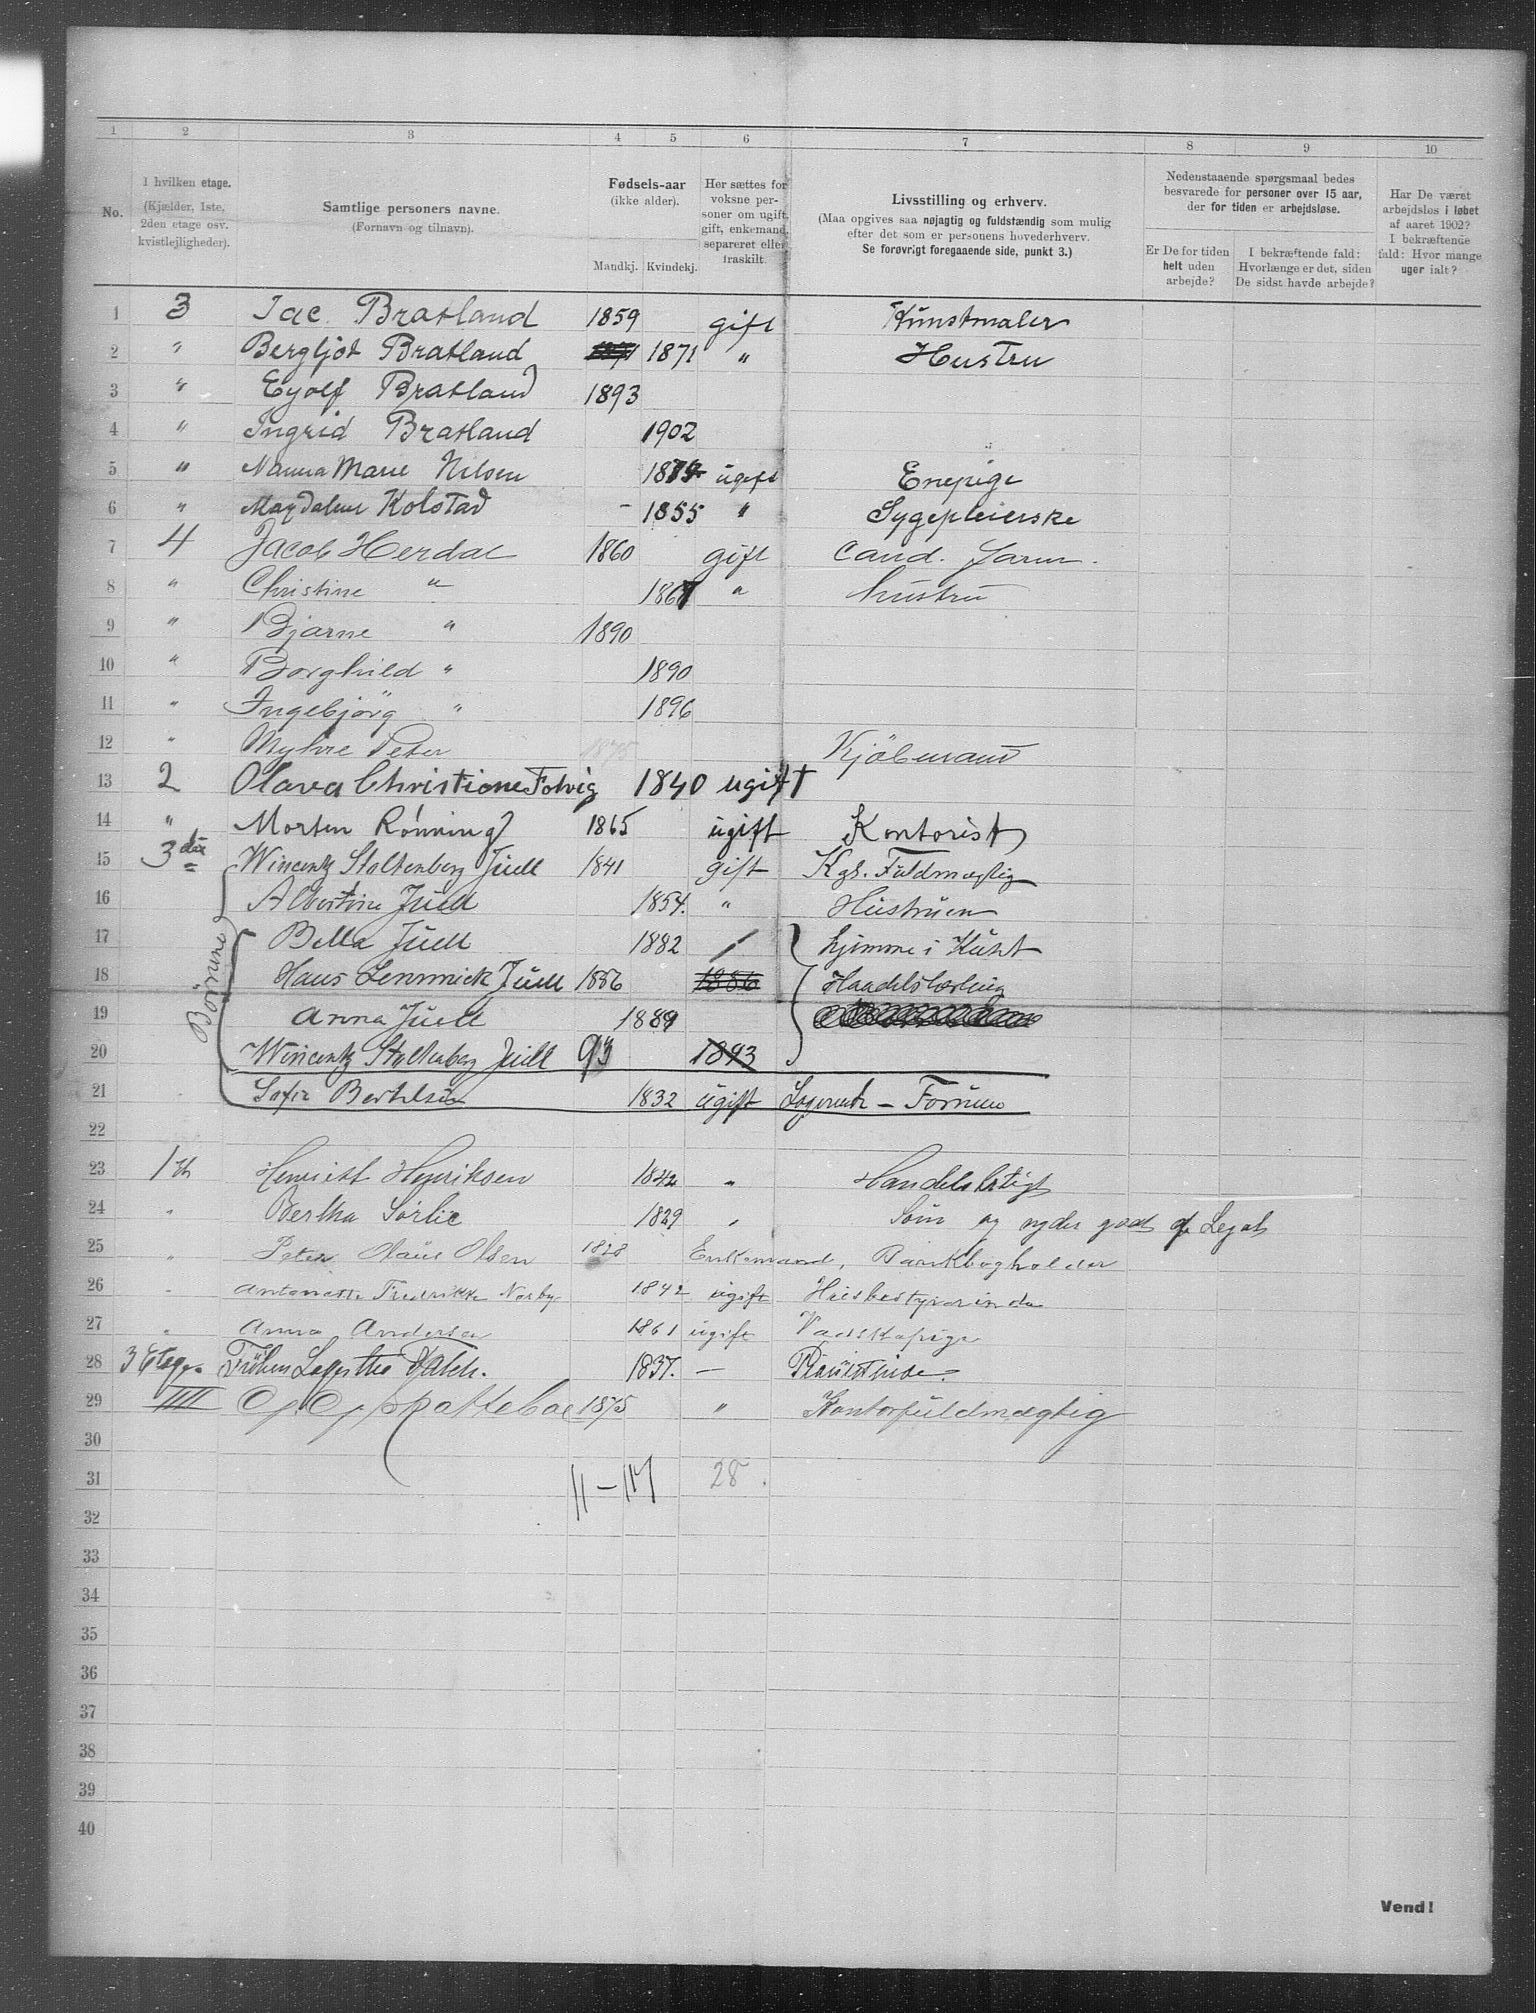 1 2 3 4 5 6 7 8 9 10
No.
I hvilken etage.
(Kjælder, 1ste,
2den etage osv.
kvistlejligheder).
Samtlige personers navne.
(Fornavn og tilnavn).
Fødsels-aar
(ikke alder).
Mandkj. Kvindekj.
Her sættes for
voksne per-
soner om ugift,
gift, enkemand,
separeret eller
fraskilt.
Livsstilling og erhverv.
(Maa opgives saa nøjagtig og fuldstændig som mulig
efter det som er personens hovederhverv.
Se forøvrigt foregaaende side, punkt 3.)
Nedenstaaende spørgsmaal bedes
besvarede for personer over 15 aar,
der for tiden er arbejdsløse.
Er De for tiden
helt uden
arbejde?
I bekræftende fald:
Hvorlænge er det, siden
De sidst havde arbejde?
Har De været
arbejdsløs i løbet
af aaret 1902?
I bekræftende
fald: Hvor mange
uger ialt?
1 3 Jac. Bratland 1859 gift Kunstmaler
2 " Bergljot Bratland 1871 " Hustru
3 " Eyolf Bratland 1893
4 " Ingrid Bratland 1902
5 " Nanna Marie Nilsen ugift Enepige
6 " Magdalene Kolstad - 1855 " Sygepleierske
7 4 Jacob Herdal 1860 gift cand. farm.
8 " Christine " " hustru
9 " Bjarne " 1890
10 " Borghild " 1890
11 " Ingebjörg " 1896
12 " Myhre Peter 1875 Kjöbmand
13 2 Olava Christiane 1840 ugift
14 " Morten Rönning 1865 ugift Kontorist
15 3die Wincentz Stoltenberg Juell 1841 gift Kgs. Fuldmægtig
16 Albertine Juell 1854. " Hustruen
Børnene
17 Bella Juell 1882 hjemme i Huset
18 Hans Juell 1886 1886 Handelslærling
19 Anna Juell 1889
20 Wincentz Stoltenberg Juell 93 1893
21 Sofie Berthelsen 1832 ugift Logerende - Formue
22
23 1 Henriksen 1842 "
24 " Bertha Sörlie 1829 " og nyder godt af Legat
25 " Peter Olaus Olsen 1828 Enkemand, Bankbogholder
26 " Antonette Fredrikke Norby 1842 ugift Husbestyrerinde
27 " Anna Andersen 1861 ugift Vadskepige
28 3 Etage Fröken 1837. -
29 IIII 1875 " Kontorfuldmægtig
30
31 11-17 28.
32
33
34
35
36
37
38
39
40
Vend!